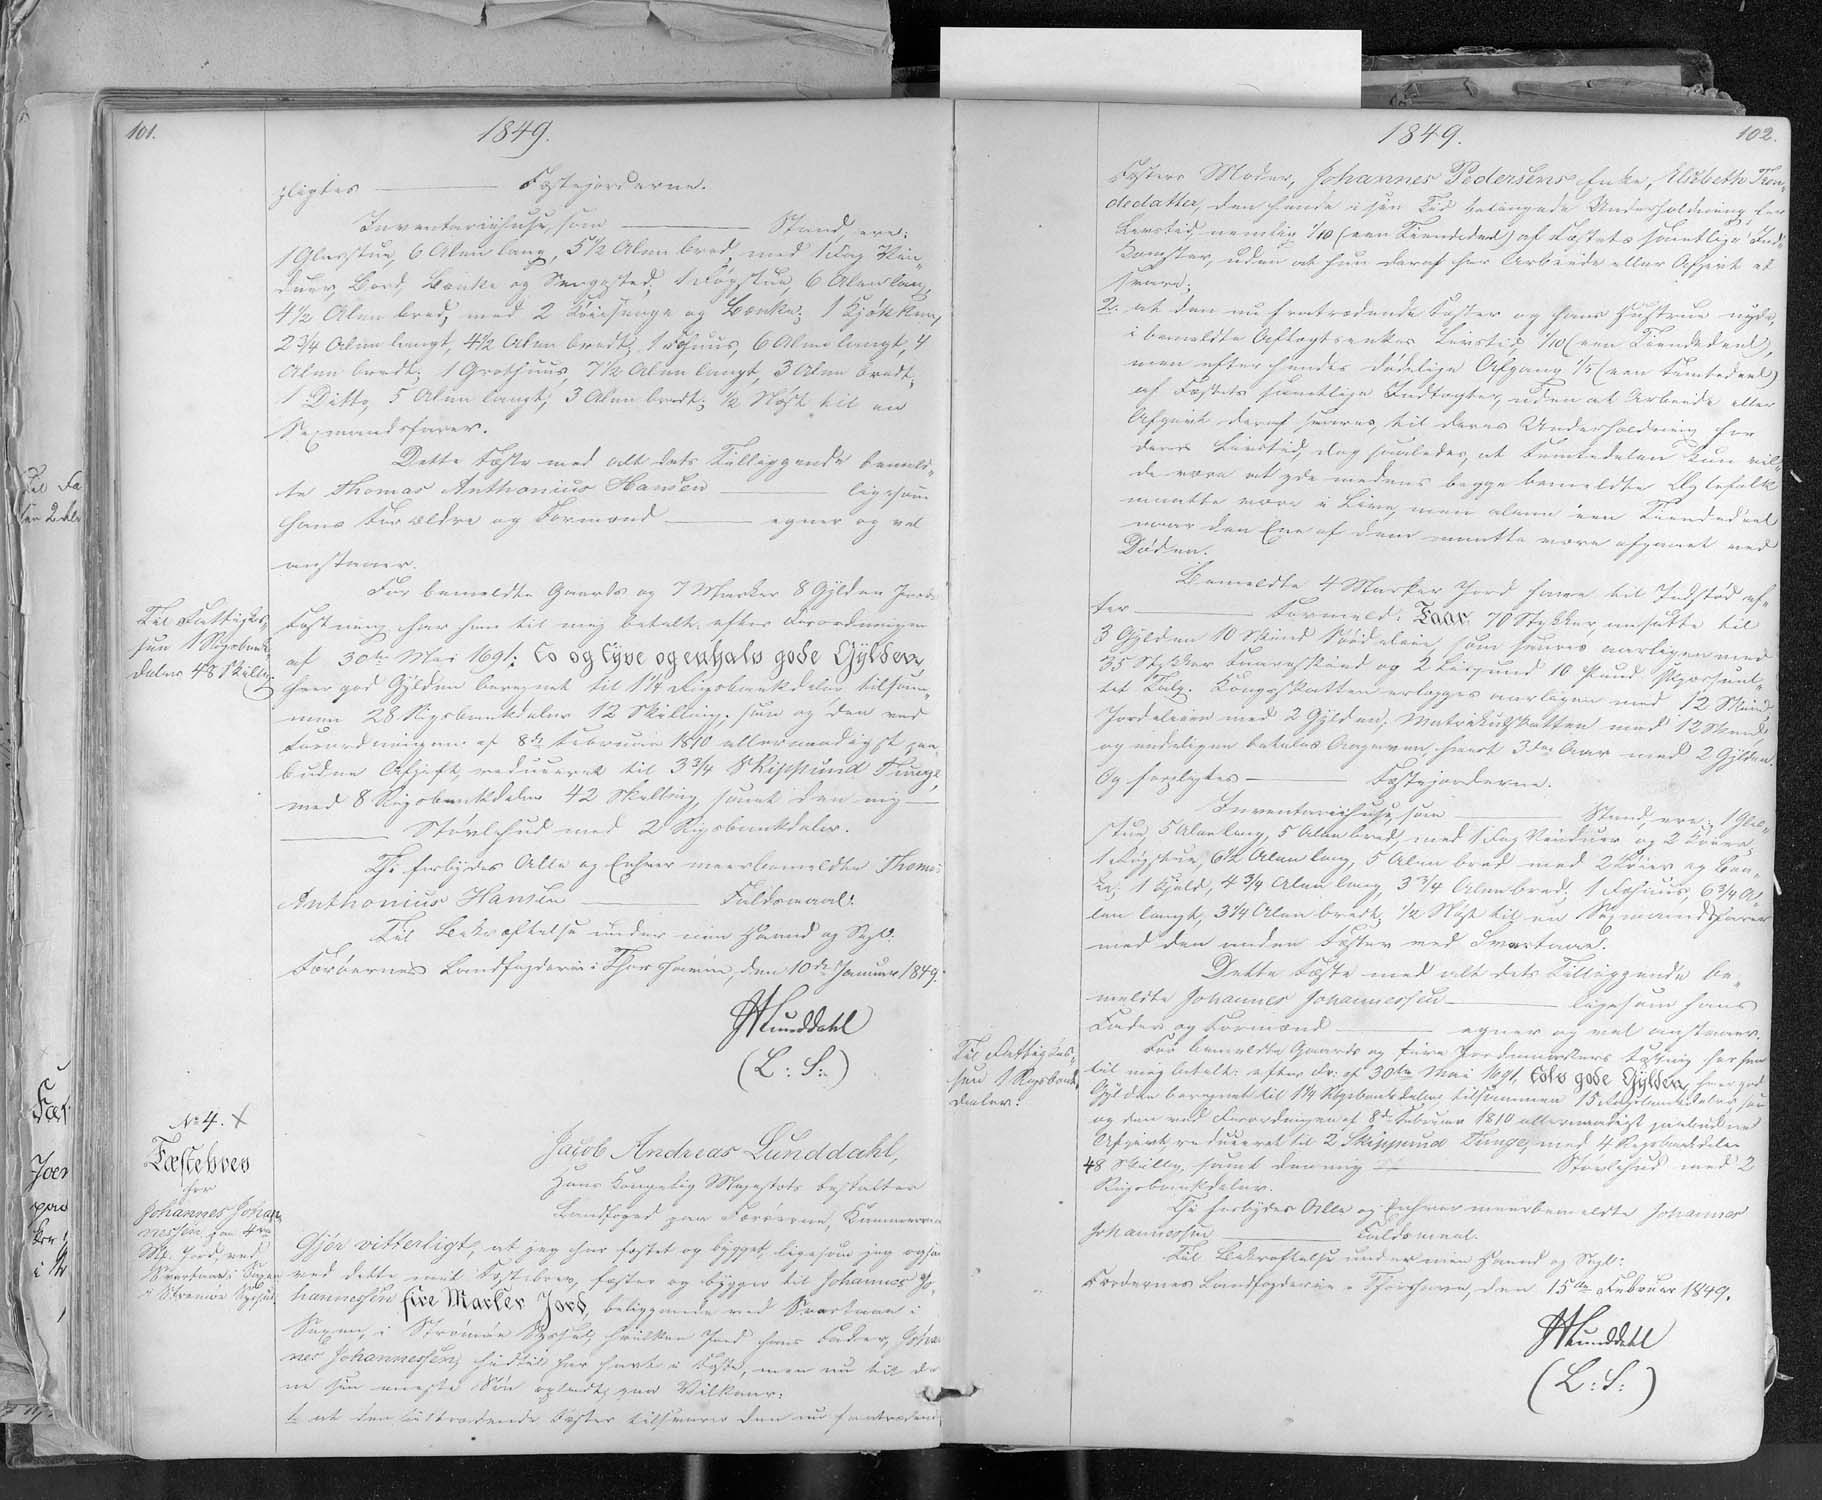 101.
1849.
pligtes ——— Fæstejorderne.
Inventariihuse, som ——— Stand, ere:
1 Glasstue, 6 Alen lang, 5½ Alen bred, med 1 Fag Vin-
duer, Bord, Bænke og Sengested; 1 Røgstue, 6 Alen lang,
4½ Alen bred, med 2 Køiesenge og Bænke; 1 Kjøkken,
2¾ Alen langt, 4½ Alen bredt; 1 Fæhuus, 6 Alen langt, 4
Alen bredt; 1 Grothuus, 7½ Alen langt, 3 Alen bredt;
1 Ditto, 5 Alen langt, 3 Alen bredt; ½ Nøst til en
Sexmandsfarer.
Dette Fæste med alt dets Tilliggende bemeld-
te Thomas Anthonius Hansen ——— ligesom
hans Forældre og Formænd ——— egner og vel
anstaaer.
For bemeldte Gaards og 7 Marker 8 Gylden Jords
Fæstning har han til mig betalt: efter Forordningen
af 30te Mai 1691: to og tyve og enhalv gode Gylden,
hver god Gylden beregnet til 1¼ Rigsbankdaler, tilsam-
men 28 Rigsbankdaler 12 Skilling, saa og den ved
Forordningen af 8de Februar 1810 allernaadigst paa-
budne Afgift, reduceret til 3¾ Skippund Tunge,
med 8 Rigsbankdaler 42 Skilling, samt den mig ———
——— Støvlehud med 2 Rigsbankdaler.
Thi forbydes Alle og Enhver meerbemeldte Thomas
Anthonius Hansen ——— Faldsmaal.
Til Bekræftelse under min Haand og Segl.
Færøernes Landfogderie i Thorshavn, den 10de Januar 1849.
HLunddahl
(L: S:)
Til Fattigkas-
sen 1 Rigsbank-
daler 48 Skilling
No 4. X
Fæstebrev
for
Johannes Johan-
nessen paa 4re
Mk. Jord ved
Svartaae i Saxen
i Strømøe Syssel.
Jacob Andreas Lunddahl,
Hans Kongelig Majestæts bestalter
Landfoged paa Færøerne, Kammerraad
Gjør vitterligt, at jeg har fæstet og bygget, ligesom jeg ogsaa
ved dette mit Fæstebrev, fæster og bygger til Johannes Jo-
hannessen fire Marker Jord, beliggende ved Svartaae i
Saxen, i Strømøe Syssel, hvilken Jord hans Fader, Johan-
nes Johannessen, hidtil har havt i Fæste, men nu til den-
ne sin eneste Søn opladt, paa Vilkaar:
1. at den tiltrædende Fæster tilsvarer den nu fratrædende
102.
1849.
Fæsters Moder, Johannes Pedersens Enke, Elsebeth Tron-
dedatter, den hende i sin Tid betingede Underholdning for
Livstid, nemlig 1/10 (een Tiendedeel) af Fæstets samtlige Ind-
komster, uden at hun deraf har Arbeide eller Afgivt at
svare;
2. at den nu fratrædende Fæster og hans Hustrue nyde,
i bemeldte Aftægtsenkes Livstid 1/10 (een Tiendedeel),
men efter hendes dødelige Afgang 1/5 (een Femtedeel)
af Fæstets samtlige Indtægter, uden at Arbeide eller
Afgivt deraf svares, til deres Underholdning for
deres Livstid, dog saaledes, at Femtedelen kun vil-
de være at yde medens begge bemeldte Ægtefolk
maatte være i Live, men alene een Tiendedeel
naar den Ene af dem maatte være afgaaet ved
Døden.
Bemeldte 4 Marker Jord have til Indstød ef-
ter ——— Formeld: Faar 70 Stykker, ansatte til
3 Gylden 10 Skind Jordeleie, som svares aarligen med
35 Stykker Faareskind og 2 Lispund 10 Pund
tet Talg. Kongsskatten erlægges aarligen med 12 Skind
Jordeleien med 2 Gylden, Matrikulskatten med 12 Skind
og endeligen betales hvert 3die Aar med 2 Gylden.
Og forpligtes ——— Fæstejorderne.
Inventariihuse, som ——— Stand, ere: 1 Glas-
stue, 5 Alen lang, 5 Alen bred, med 1 Fag Vinduer og 2
1 Røgstue, 6½ Alen lang, 5 Alen bred med 2 Køier og Bæn-
ke; 1 Hjald, 4¾ Alen lang, 3¾ Alen bred; 1 Fæhuus, 6¾ A-
len langt, 3¼ Alen bredt; ½ Nøst til en Sexmandsfarer
med den anden Fæster ved Svartaae.
Dette Fæste med alt dets Tilliggende be-
meldte Johannes Johannessen ——— ligesom hans
Fader og Formænd ——— egner og vel anstaaer.
For bemeldte Gaards og fire Jordemarkers Fæstning har han
til mig betalt: efter Fr: af 30te Mai 1691, tolv gode Gylden, hver god
Gylden beregnet til 1¼ Rigsbankdaler, tilsammen 15 Rigsbankdaler, saa
og den ved Forordningen af 8de Februar 1810 allernaadigst paabudne
Afgivt, reduceret til 2 Skippund Tunge, med 4 Rigsbankdaler
48 Skilling, samt den mig ——— Støvlehud med 2
Rigsbankdaler.
Thi forbydes Alle og Enhver meerbemeldte Johannes
Johannessen ——— Faldsmaal.
Til Bekræftelse under min Haand og Segl:
Færøernes Landfogderie i Thorshavn, den 15de Februar 1849.
HLunddahl
(L: S:)
Til Fattigkas-
sen 1 Rigsbank-
daler.